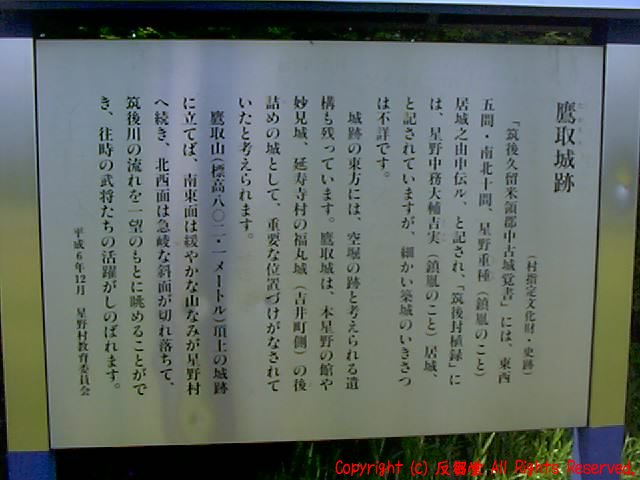 鷹取城跡
(村指定文化財・史跡)
「筑後久留米領郡中古城覚書」には、東西
五間・南北十間、星野重種(鎮胤のこと)
居城之由申伝ル、と記され、「筑後封植録」に
は、星野中務大輔吉実(鎮胤のこと)居城、
と記されていますが、細かい築城のいきさつ
は不詳です。
城跡の東方には、空堀の跡と考えられる遺
構も残っています。鷹取城は、本星野の館や
妙見城、延寿寺村の福丸城(吉井町側)の後
詰めの城として、重要な位置づけがなされて
いたと考えられます。
鷹取山(標高八〇二・一メートル)頂上の城跡
に立てば、南東面は緩やかな山なみが星野村
へ続き、北西面は急峻な斜面が切れ落ちて、
筑後川の流れを一望のもとに眺めることがで
き、往時の武将たちの活躍がしのばれます。
平成6年12月 星野村教育委員会
Copyright (C) 反響堂 All Rights Reserved.